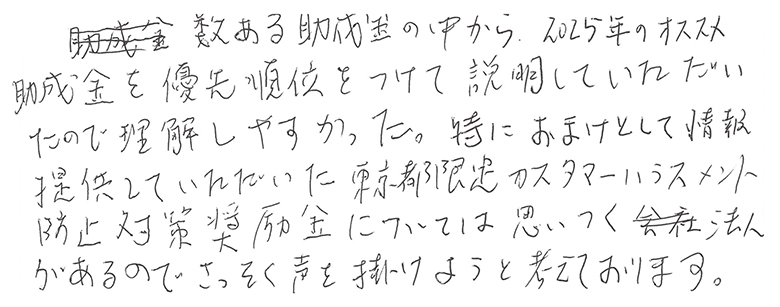 助成金 数ある助成金の中から、2025年のオススメ
助成金を優先順位をつけて説明していただい
たので理解しやすかった。特におまけとして情報
提供していただいた東京都限定カスタマーハラスメント
防止対策奨励金については思いつく会社法人
があるのでさっそく声を掛けようと考えております。